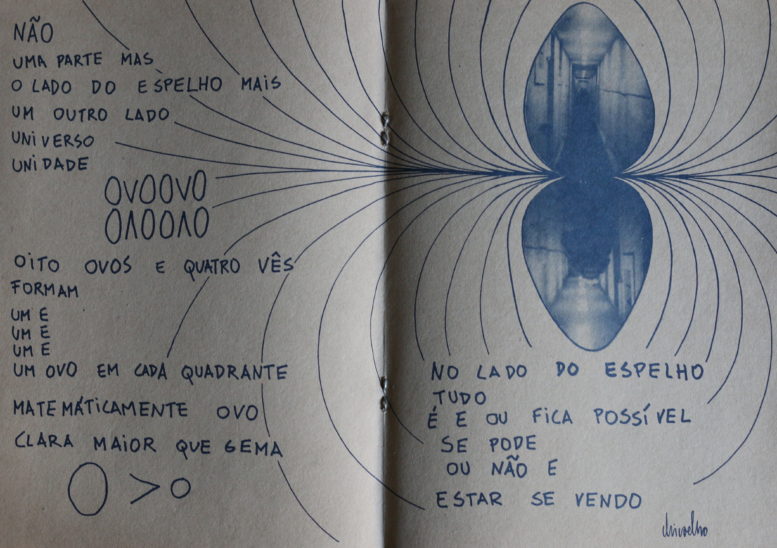 NÃO
UMA PARTE MAS
O LADO DO ESPELHO MAIS
UM OUTRO LADO
UNIVERSO
UNIDADE
OVOOVO
OΛOOΛO
OITO OVOS E QUATRO VÊS
FORMAM
UM E
UM E
UM E
UM OVO EM CADA QUADRANTE
MATEMÁTICAMENTE OVO
CLARA MAIOR QUE GEMA
O > o
NO LADO DO ESPELHO
TUDO
É E OU FICA POSSÍVEL
SE PODE
OU NÃO E
ESTAR SE VENDO